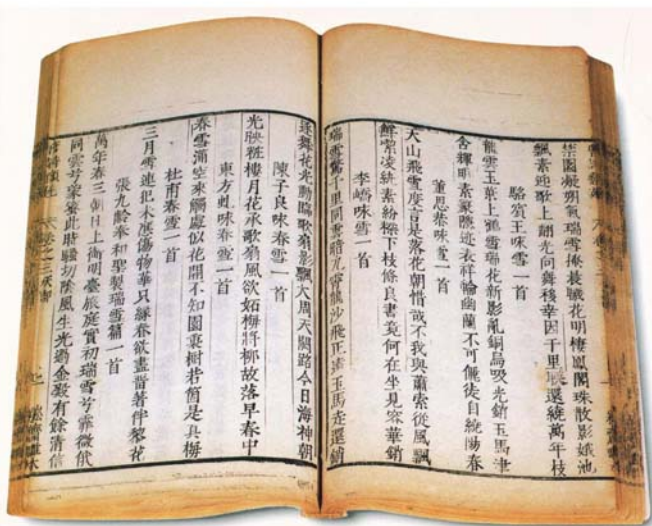 禁園凝朔氣瑞雪掩晨曦花明棲鳳閣珠散影娥池
飄素迎歌上翻光向舞移幸因千里映還繞萬年枝
駱賓王咏雪一首
龍雲玉葉上鶴雪瑞花新影亂銅烏吹光銷玉馬津
含輝明素篆隱迹表祥輪幽蘭不可儷徒自繞陽春
董思恭咏雪一首
天山飛雪度言是落花朝惜哉不我與蕭索從風飄
鮮潔凌紈素紛糅下枝條良書竟何在坐見容華銷
李嶠咏雪一首
瑞雪驚千里同雲暗九霄龍沙飛正遠玉馬走還銷
逐舞花光動臨歌扇影飄大周天闕路今日海神朝
陳子良咏春雪一首
光映粧樓月花承歌扇風欲妬梅將柳故落早春中
東方虬咏春雪一首
春雪滿空來觸處似花開不知園裏樹若箇是真梅
杜甫春雪一首
三月雪連夜未應傷物華只緣春欲盡留著伴梨花
張九齡奉和聖製瑞雪篇一首
萬年春三朝日上御明臺旅庭實初瑞雪兮霏微俄
同雲兮蒙密此時騷切陰風生先過金殿有餘清信